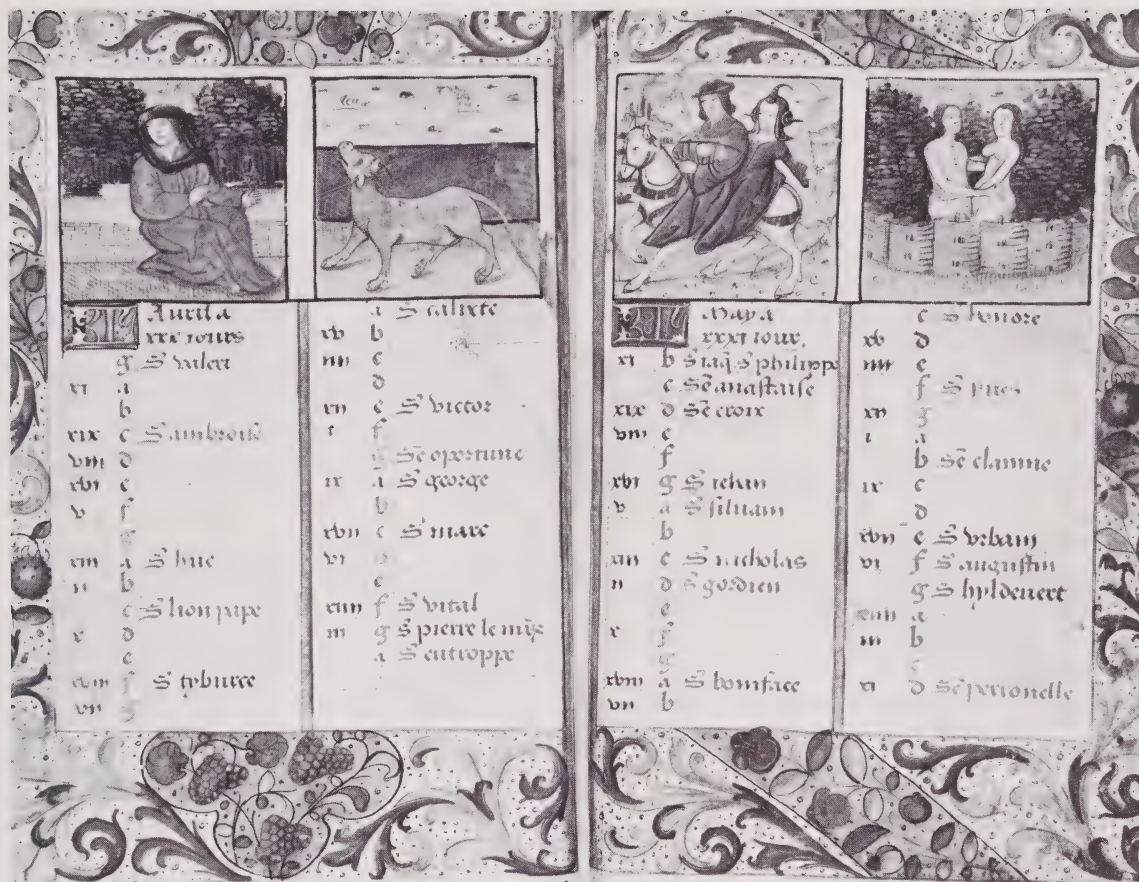 Leo
KL Auril a
xxx iours
g S valeri
xi a
b
xix c S ambroise
viii d
xvi e
v f
g
xiii a S hue
ii b
c S lion pape
x d
e
xviii f S tyburce
vii g
a S calixte
xv b
iiii c
d
xii e S victor
i f
g Sē oportune
ix a S george
b
xvii c S marc
vi
e
xiiii f S vital
iii g S pierre le
a S eutroppe
KL May a
xxxi iour
xi b S iaq̄ S philippe
c Sē anastaise
xix d Sē croix
viii e
f
xvi g S iehan
v a S siluain
b
xiii c S nicholas
ii d S gordien
e
x f
g
xviii a S boniface
vii b
c S honore
xv d
iiii e
f S yues
xii g
i a
b Sē
ix c
d
xvii e S vrbain
vi f S augustin
g S hyldeuert
xiiii a
iii b
c
xi d Sē perronelle